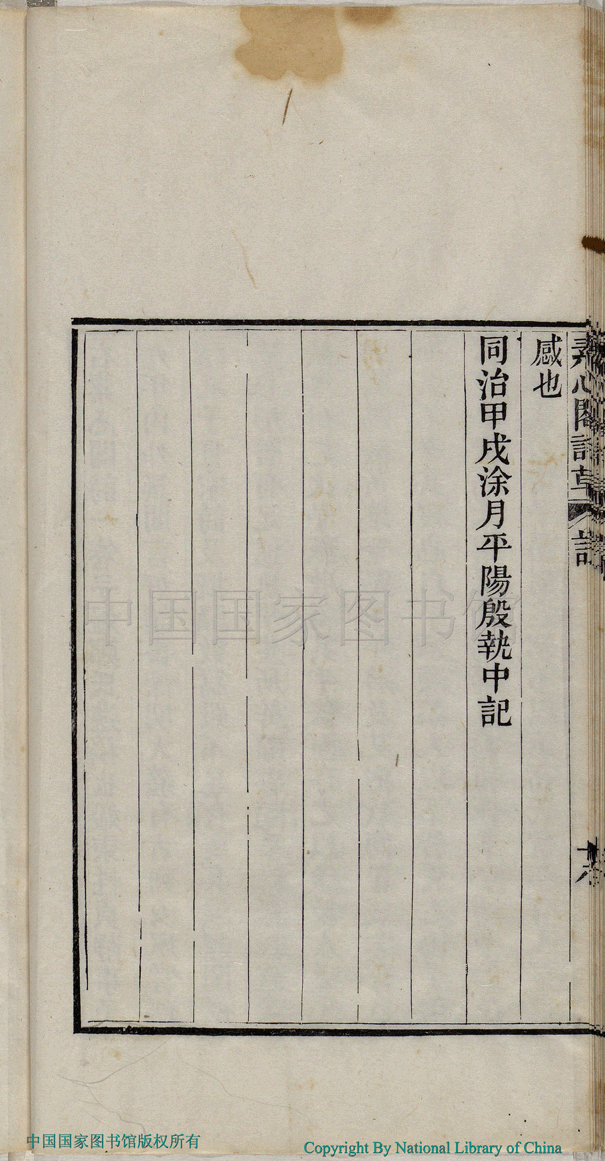 感也
同治甲戌涂月平陽殷執中記
中国国家图书馆
中国国家图书馆版权所有
Copyright By National Library of China